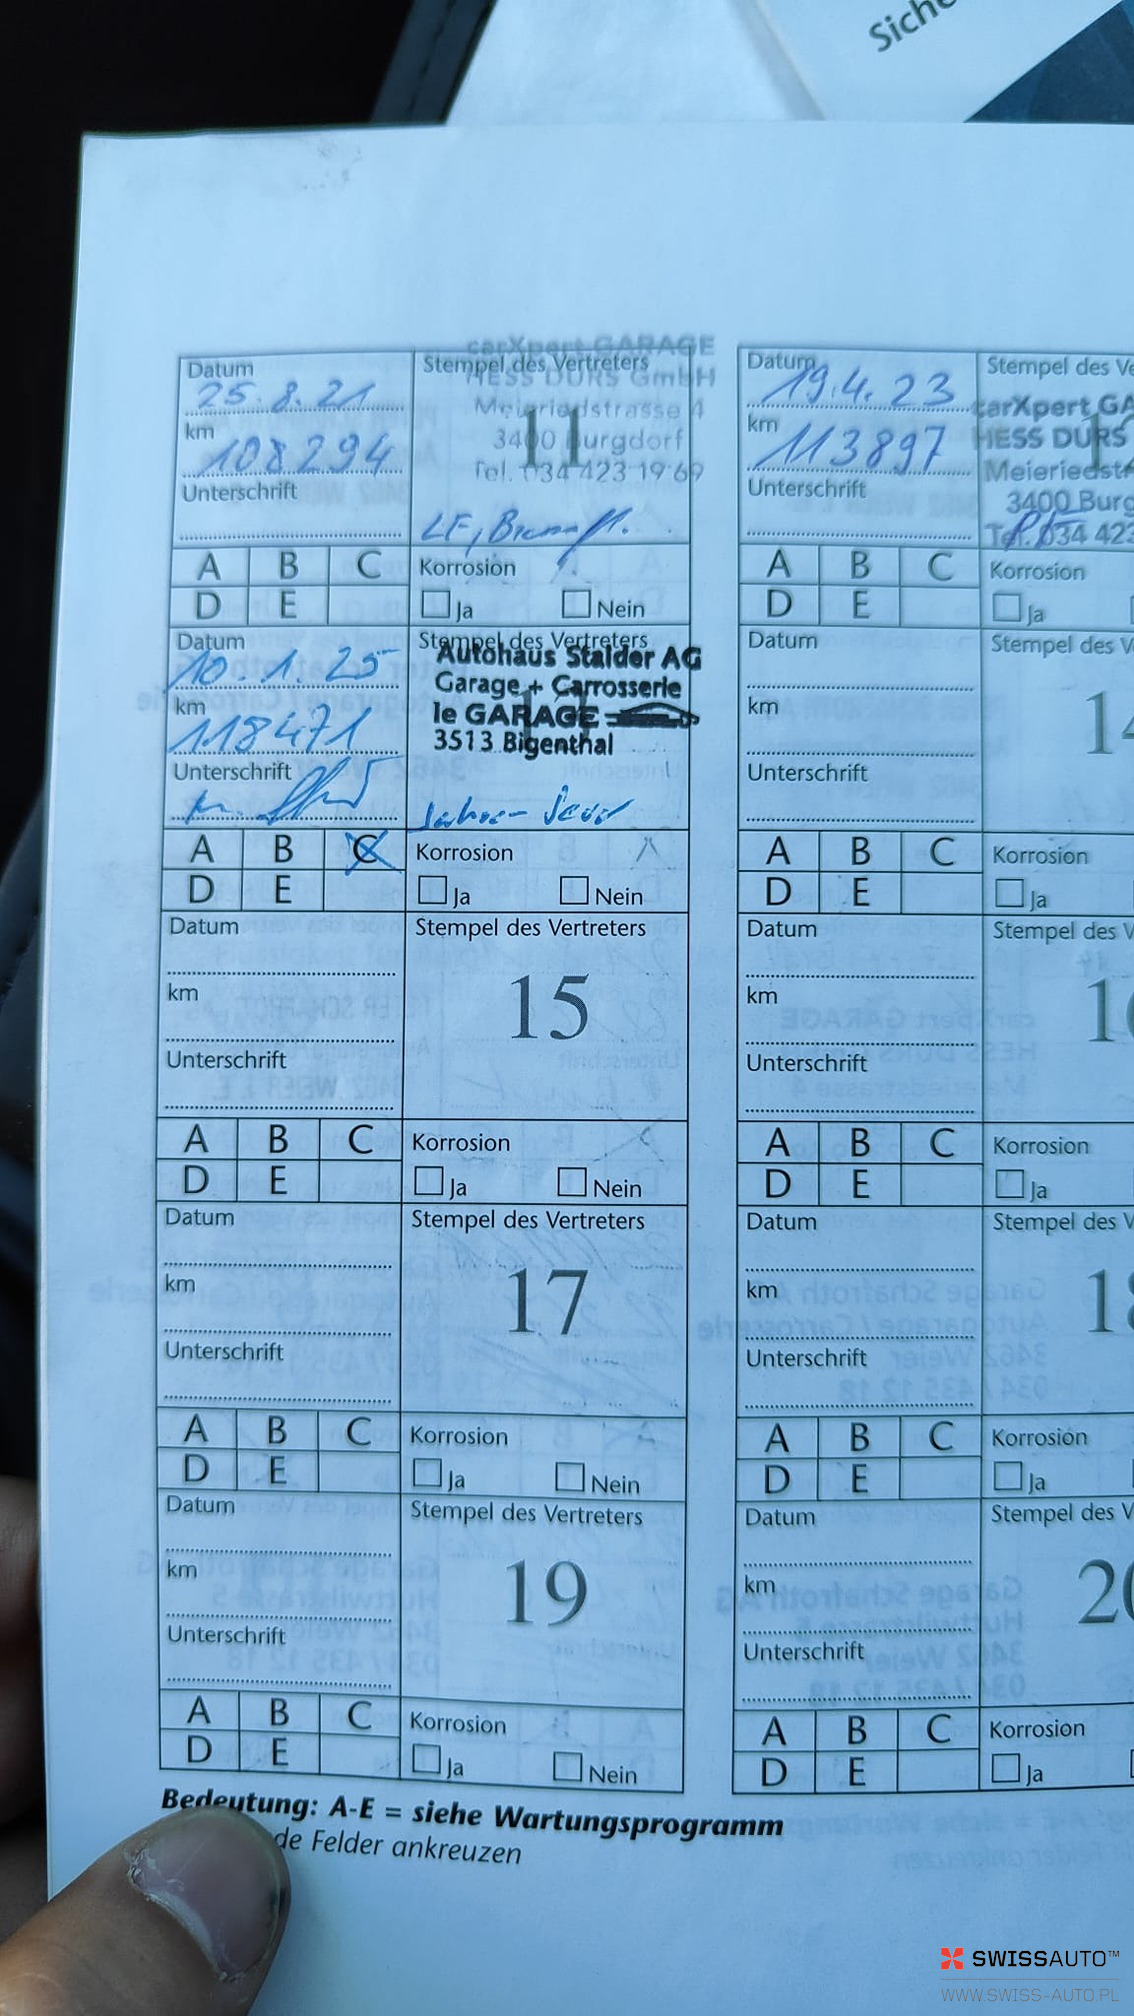 Siche
Datum
25.8.21
km
108294
Unterschrift
Stempel des Vertreters
carXpert GARAGE
HESS DURS GmbH
Meieriedstrasse 4
3400 Burgdorf
Tel. 034 423 19 69
11
A B C
D E
Korrosion
Ja Nein
Datum
19.4.23
km
113897
Unterschrift
Stempel des Ve
carXpert GA
HESS DURS
Meieriedstr
3400 Burg
Tel. 034 423
A B C
D E
Korrosion
Ja
Datum
10.1.25
km
118471
Unterschrift
Stempel des Vertreters
Autohaus Stalder AG
Garage + Carrosserie
le GARAGE
3513 Bigenthal
A B C
D E
Korrosion
Ja Nein
Datum
km
Unterschrift
Stempel des V
14
A B C
D E
Korrosion
Ja
Datum
km
Unterschrift
Stempel des Vertreters
15
A B C
D E
Korrosion
Ja Nein
Datum
km
Unterschrift
Stempel des V
16
A B C
D E
Korrosion
Ja
Datum
km
Unterschrift
Stempel des Vertreters
17
A B C
D E
Korrosion
Ja Nein
Datum
km
Unterschrift
Stempel des V
18
A B C
D E
Korrosion
Ja
Datum
km
Unterschrift
Stempel des Vertreters
19
A B C
D E
Korrosion
Ja Nein
Datum
km
Unterschrift
Stempel des V
20
A B C
D E
Korrosion
Ja
Bedeutung: A-E = siehe Wartungsprogramm
de Felder ankreuzen
SWISSAUTO™
WWW.SWISS-AUTO.PL